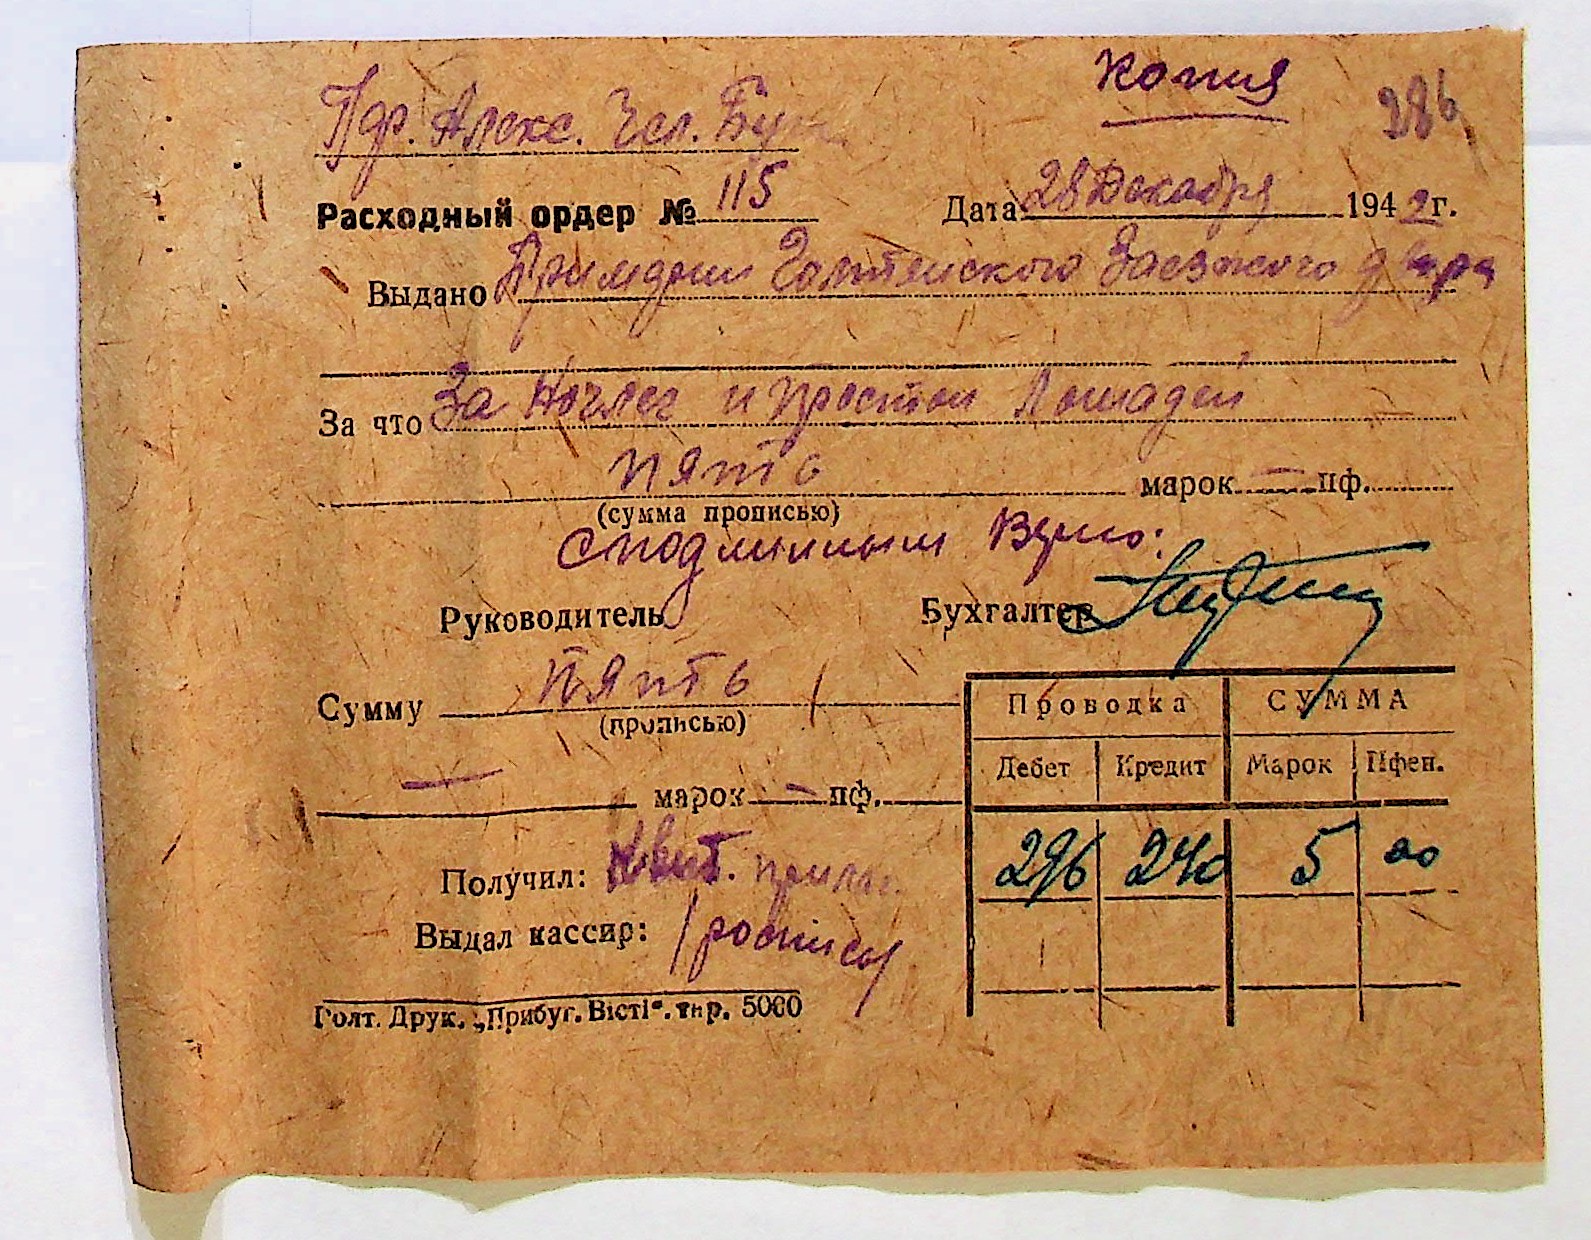 Копия
286
Расходный ордер № 115 Дата 28 Декабря 1942 г.
Выдано Голтянского Заезжого двора
За что За Ночлег и простой Лошадей
пять марок — пф.
(сумма прописью)
С подлинным Верно:
Руководитель Бухгалтер
Сумму пять
(прописью)
— марок — пф.
Проводка СУММА
Дебет Кредит Марок Пфен.
296 240 5 00
Получил: Квит. прилаг.
Выдал кассир: /роспись/
Голт. Друк. „Прибуг. Вісті“. тир. 5000